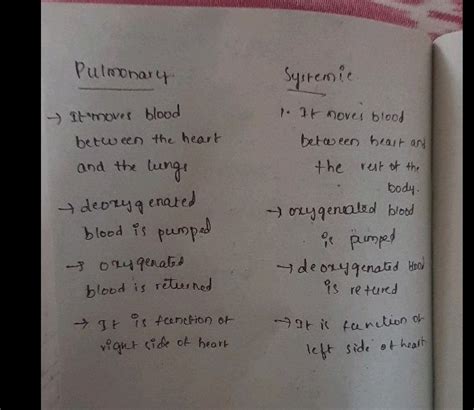 Pulmonary
→ It moves blood
between the heart
and the lungs
→ deoxygenated
blood is pumped
→ oxygenated
blood is returned
→ It is function of
right side of heart
Systemic
1. It moves blood
between heart and
the rest of the
body.
→ oxygenated blood
is pumped
→ deoxygenated blood
is retured
→ It is function of
left side of heart